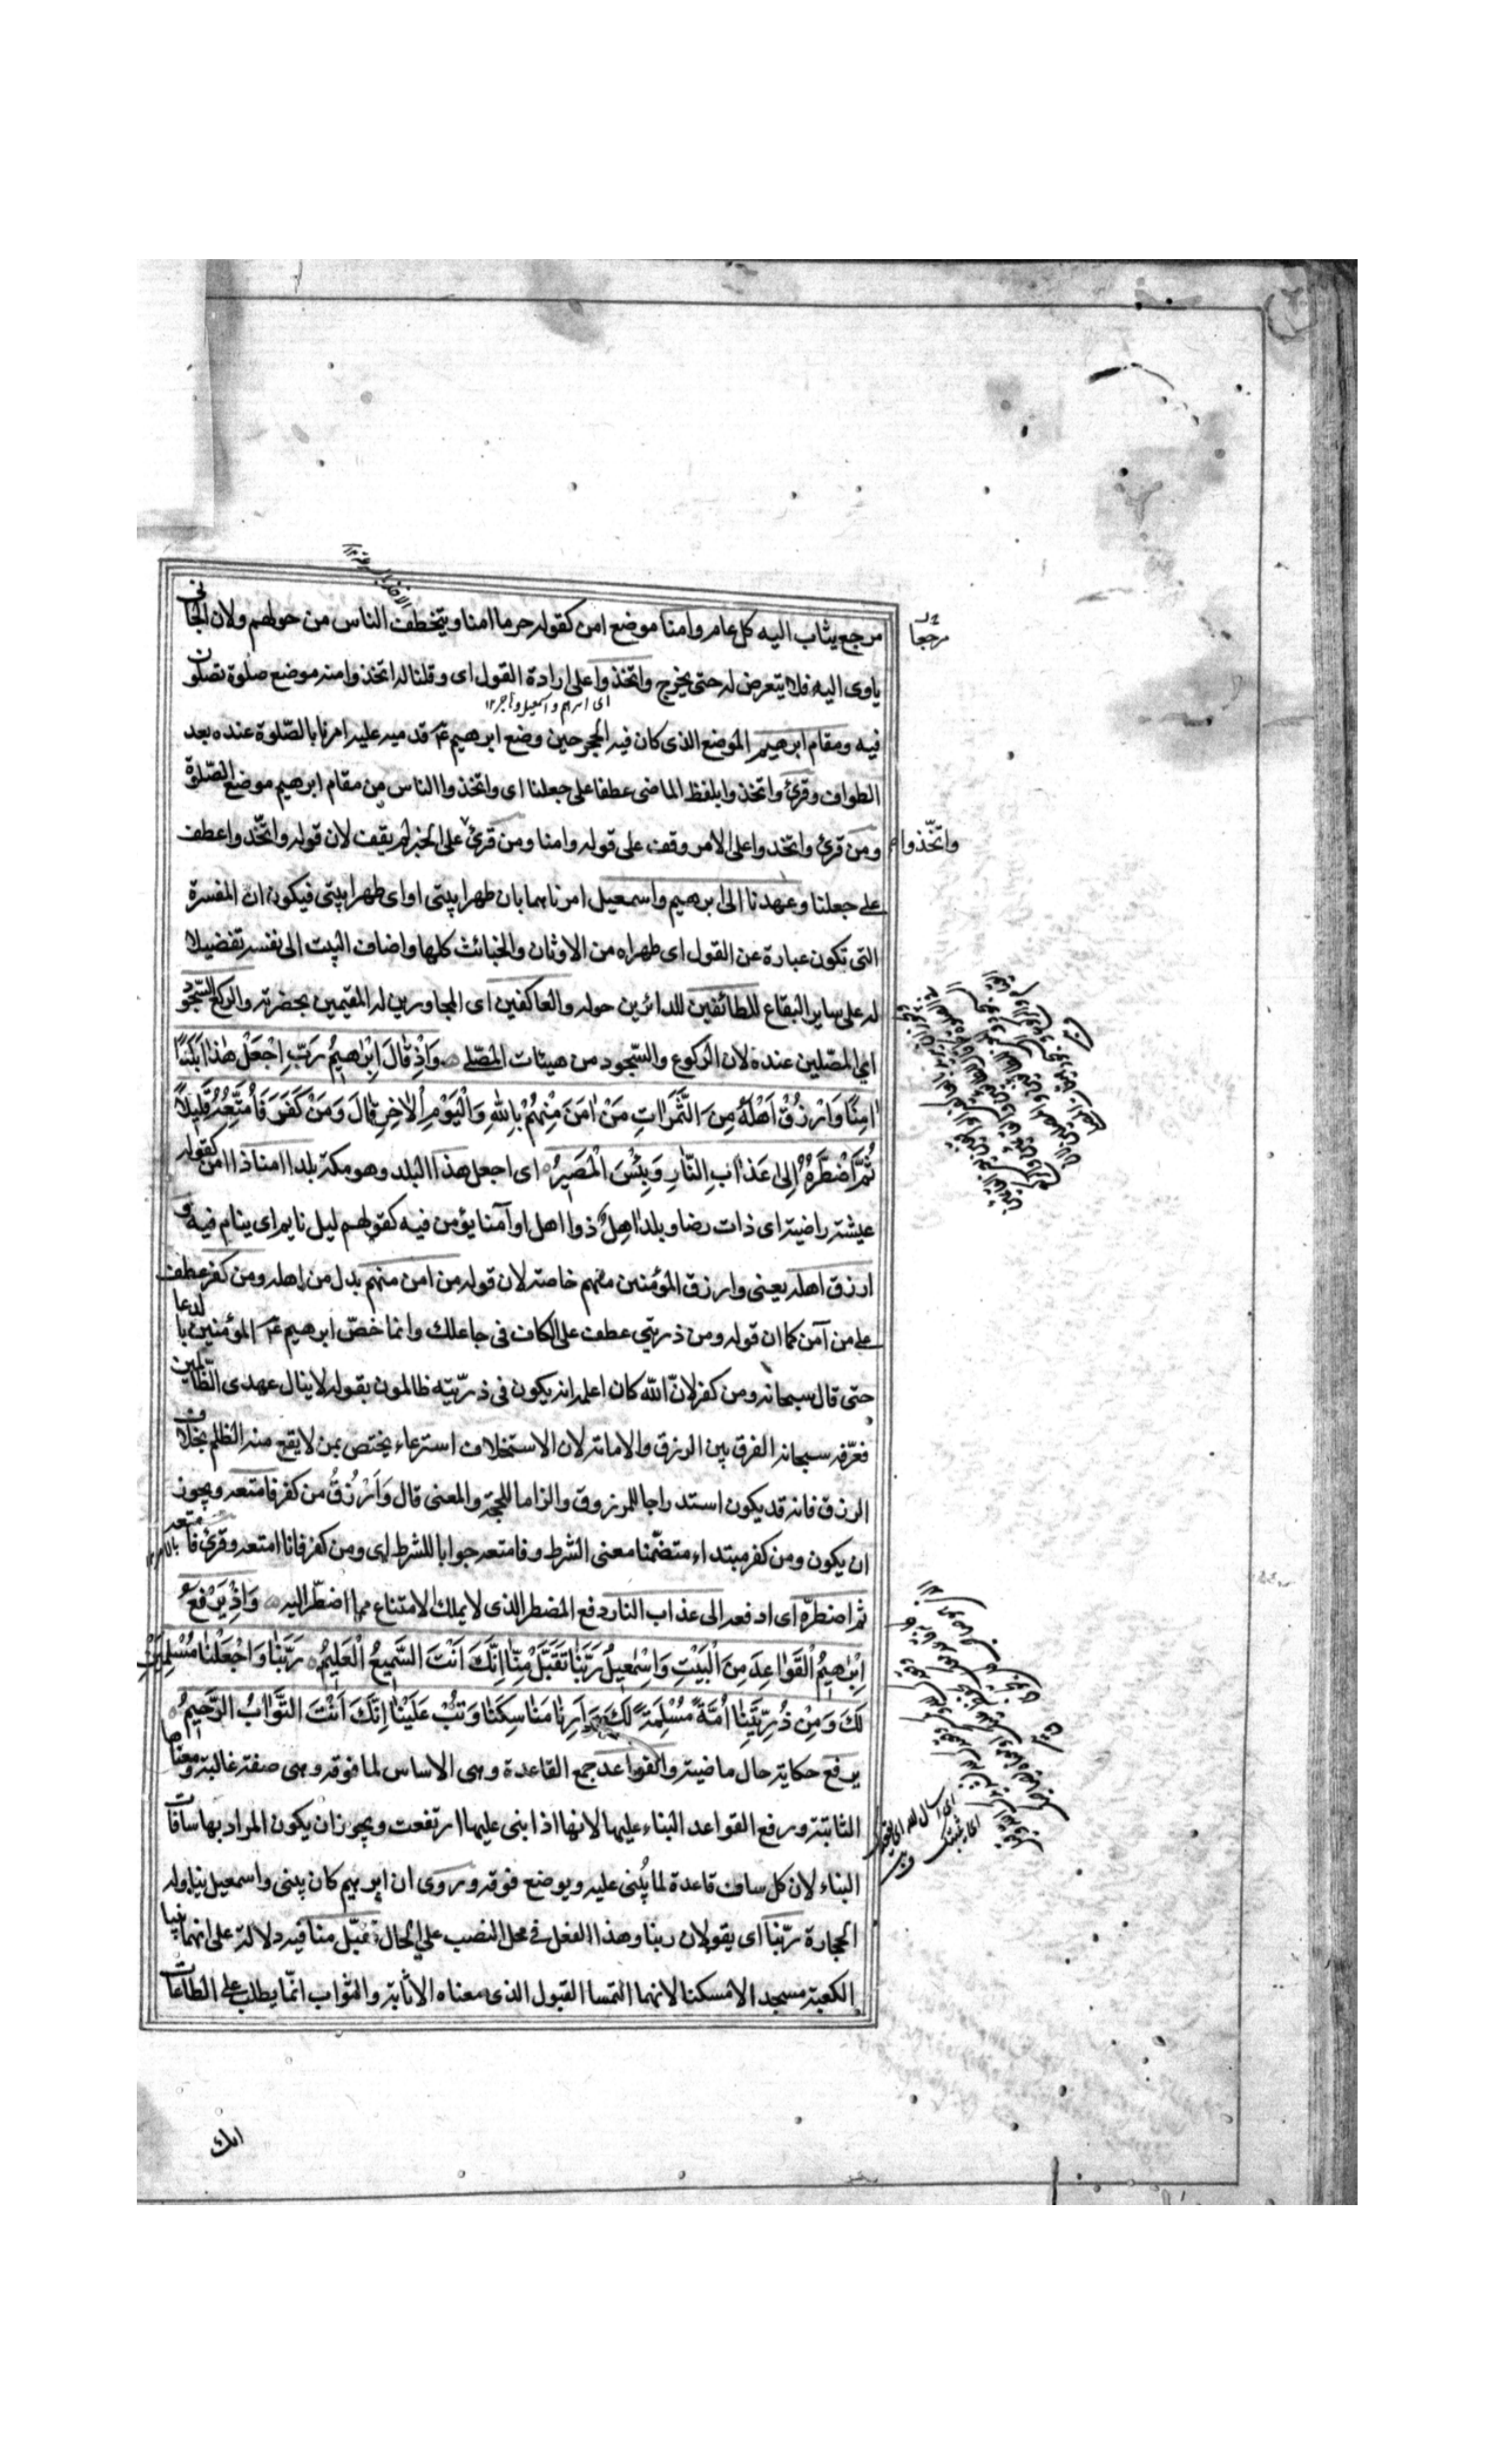 مرجع يثاب اليه كل عام وامنا موضع امن كقوله حرما امنا ويتخطف الناس من حولهم ولان الجانى
ياوى اليه فلا يتعرض له حتى يخرج واتخذوا على ارادة القول اى وقلنا له اتخذوا منه موضع صلوة تصلون
فيه ومقام ابرهيم الموضع الذى كان فيه الحجر حين وضع ابرهيم ع قدميه عليه امرنا بالصّلوة عنده بعد
الطواف وقرئ واتخذوا بلفظ الماضى عطفا على جعلنا اى واتخذوا الناس من مقام ابرهيم موضع الصّلوة
ومن قرئ واتخذوا على الامر وقف على قوله وامنا ومن قرئ على الخبر لم يقف لان قوله واتّخذوا عطف
على جعلنا وعهدنا الى ابرهيم واسمعيل امرناهما بان طهرا بيتى او اى طهرا بيتى فيكون ان المفسرة
التى تكون عبارة عن القول اى طهراه من الاوثان والخبائث كلها واضاف البيت الى نفسه تفضيلا
له على ساير البقاع للطائفين للدائرين حوله والعاكفين اى المجاورين له المقيمين بحضرته والركع السّجود
اي المصّلين عنده لان الركوع والسّجود من هيئات المصّلى وَاِذْ قَالَ اِبْرٰهِيمُ رَبِّ اجْعَلْ هٰذَا بَلَدًا
اٰمِنًا وَارْزُقْ اَهْلَهُ مِنَ الثَّمَرَاتِ مَنْ اٰمَنَ مِنْهُمْ بِاللّٰهِ وَالْيَوْمِ الْاٰخِرِ قَالَ وَمَنْ كَفَرَ فَاُمَتِّعُهُ قَلِيلًا
ثُمَّ اَضْطَرُّهُ اِلٰى عَذَابِ النَّارِ وَبِئْسَ الْمَصِيرُ اى اجعل هذا البلد وهو مكة بلدا امنا ذا امن كقوله
عيشة راضية اى ذات رضا وبلد اهل ذوا اهل او آمنا يؤمن فيه كقولهم ليل نايم اى ينام فيه و
ارزق اهله يعنى وارزق المؤمنين منهم خاصة لان قوله من امن منهم بدل من اهله ومن كفر عطف
على من آمن كما ان قوله ومن ذريتي عطف على الكاف فى جاعلك وانما خصّ ابرهيم ع المؤمنين بالدعا
حتى قال سبحانه ومن كفر لانّ اللّه كان اعلمه انه يكون فى ذرّيته ظالمون بقوله لا ينال عهدى الظّالمين
فعرّفه سبحانه الفرق بين الرزق والامامة لان الاستخلاف استرعاء يختص بمن لا يقع منه الظلم بخلاف
الرزق فانه قد يكون استدراجا للمرزوق والزاما للحجة والمعنى قال وَاَرْزُقُ من كفر فامتعه ويجوز
ان يكون ومن كفر مبتداء متضمّنا معنى الشرط وفامتعه جوابا للشرط اى ومن كفر فانا امتعه وقرئ فامتعه
ثم اضطرّه اى ادفعه الى عذاب النار دفع المضطر الذى لا يملك الامتناع مما اضطّر اليه وَاِذْ يَرْفَعُ
اِبْرٰهِيمُ الْقَوَاعِدَ مِنَ الْبَيْتِ وَاِسْمٰعِيلُ رَبَّنَا تَقَبَّلْ مِنَّا اِنَّكَ اَنْتَ السَّمِيعُ الْعَلِيمُ رَبَّنَا وَاجْعَلْنَا مُسْلِمَيْنِ
لَكَ وَمِنْ ذُرِّيَّتِنَا اُمَّةً مُسْلِمَةً لَكَ وَاَرِنَا مَنَاسِكَنَا وَتُبْ عَلَيْنَا اِنَّكَ اَنْتَ التَّوَّابُ الرَّحِيمُ
يرفع حكاية حال ماضية والقواعد جمع القاعدة وهى الاساس لما فوقه وهى صفة غالبة ومعناها
الثابتة ورفع القواعد البناء عليها لانها اذا بنى عليها ارتفعت ويجوز ان يكون المراد بها سافات
البناء لان كل ساف قاعدة لما يُبنى عليه ويوضع فوقه وروى ان ابرهيم كان يبنى واسمعيل يناوله
الحجارة ربّنا اى يقولان ربنا وهذا الفعل في محل النصب على الحال تقبّل منا فيه دلالة على انهما بنيا
الكعبة مسجدا لا مسكنا لانهما التمسا القبول الذى معناه الاثابة والثواب انّما يطلب على الطاعات
مرجعا
اى ابراهيم واسمعيل وهاجر ١٢
واتّخذوا م